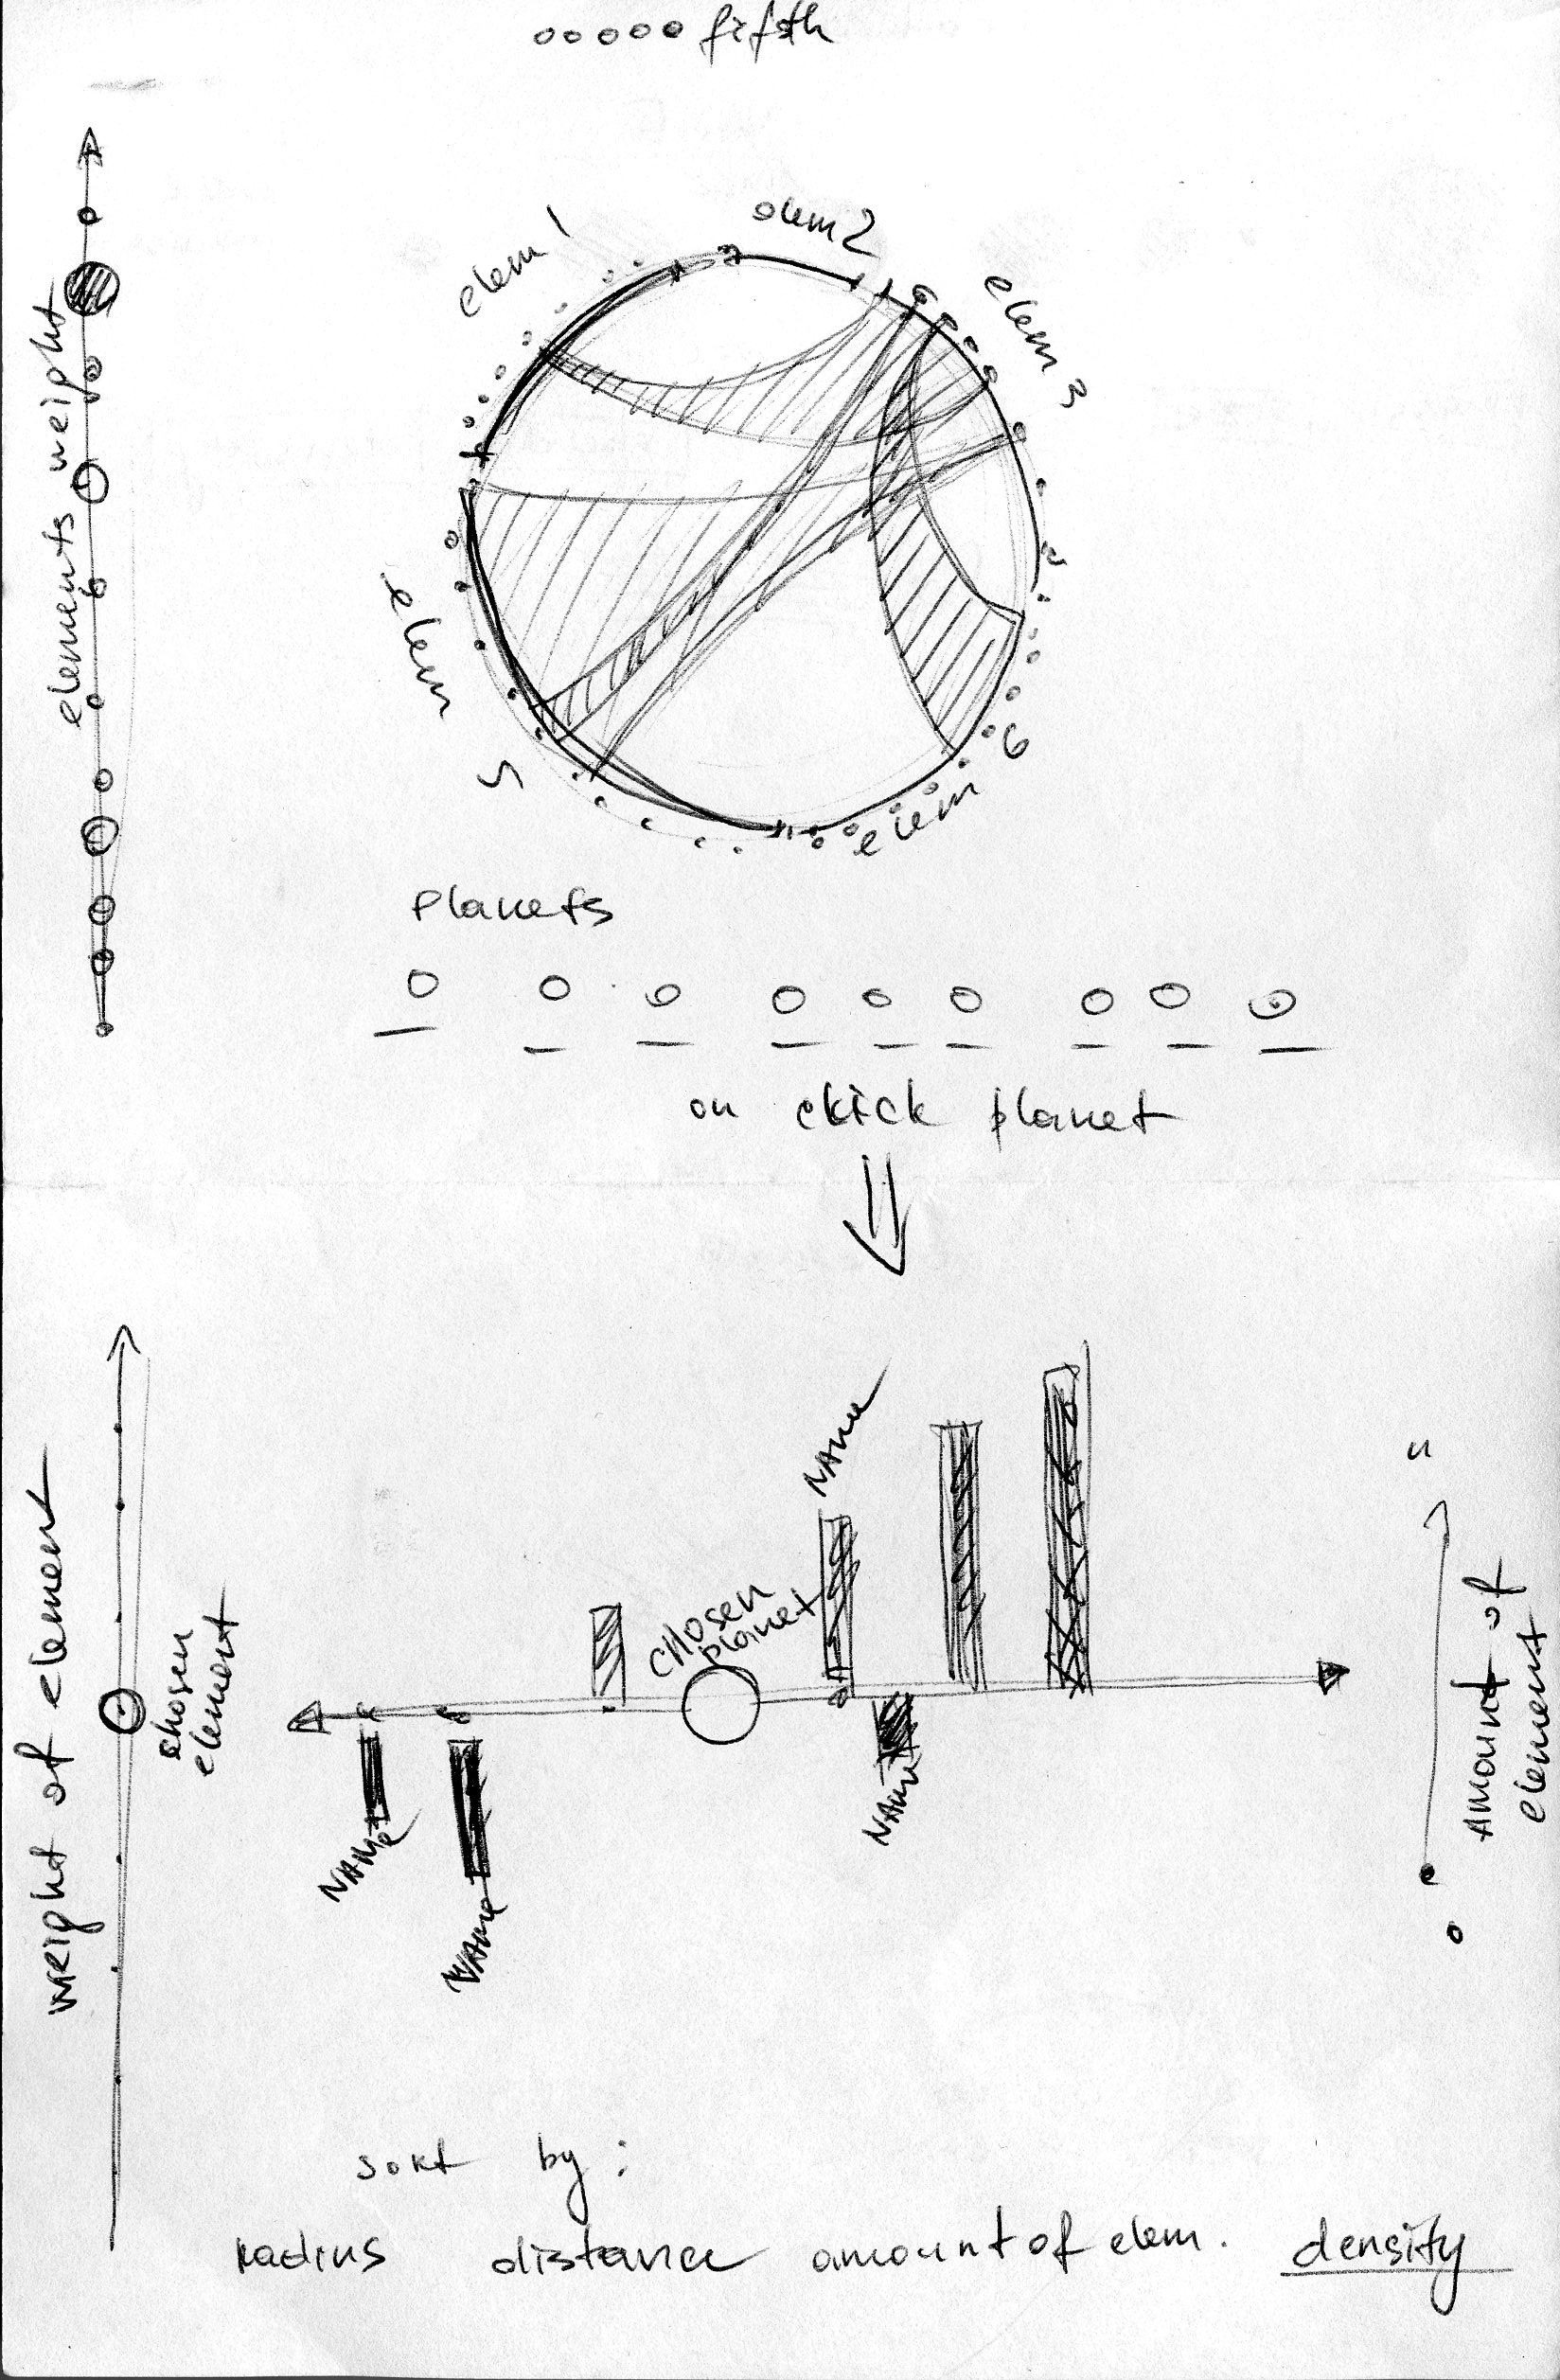 fifth
elem 1
elem 2
elem 3
elements weight
elem 5
elem 6
planets
on click planet
weight of element
chosen element
NAME
chosen planet
NAME
NAME
NAME
n
Amount of element
0
sort by:
radius distance amount of elem. density